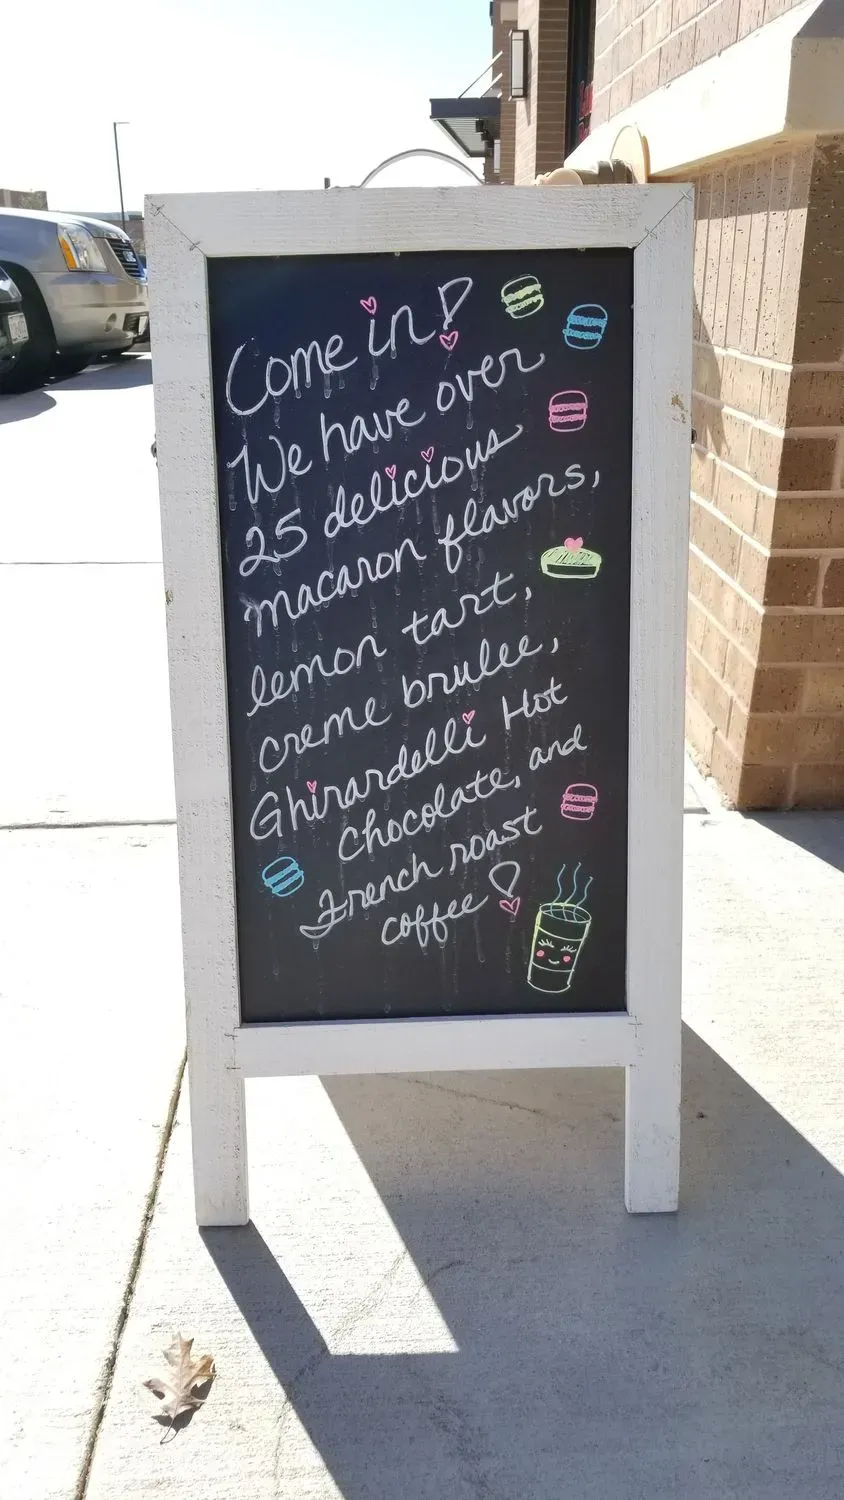 Come in!
We have over
25 delicious
macaron flavors,
lemon tart,
creme brulee,
Ghirardelli Hot
Chocolate, and
French roast
coffee!